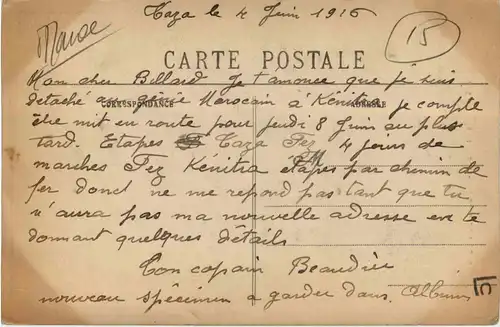 Taza le 4 Juin 1916
Maroc
15
CARTE POSTALE
CORRESPONDANCE
ADRESSE
Mon cher Billard Je t'anonce que je suis
détaché au génie Marocain à Kénitra je compte
être mit en route pour jeudi 8 Juin au plus
tard. Etapes Taza Fez 4 jours de
marches Fez Kénitra étapes par chemin de
fer donc ne me repond pas tant que tu
n'aura pas ma nouvelle adresse en te
donnant quelques détails
Ton copain Beaudieu
nouveau spécimen a garder dans Album